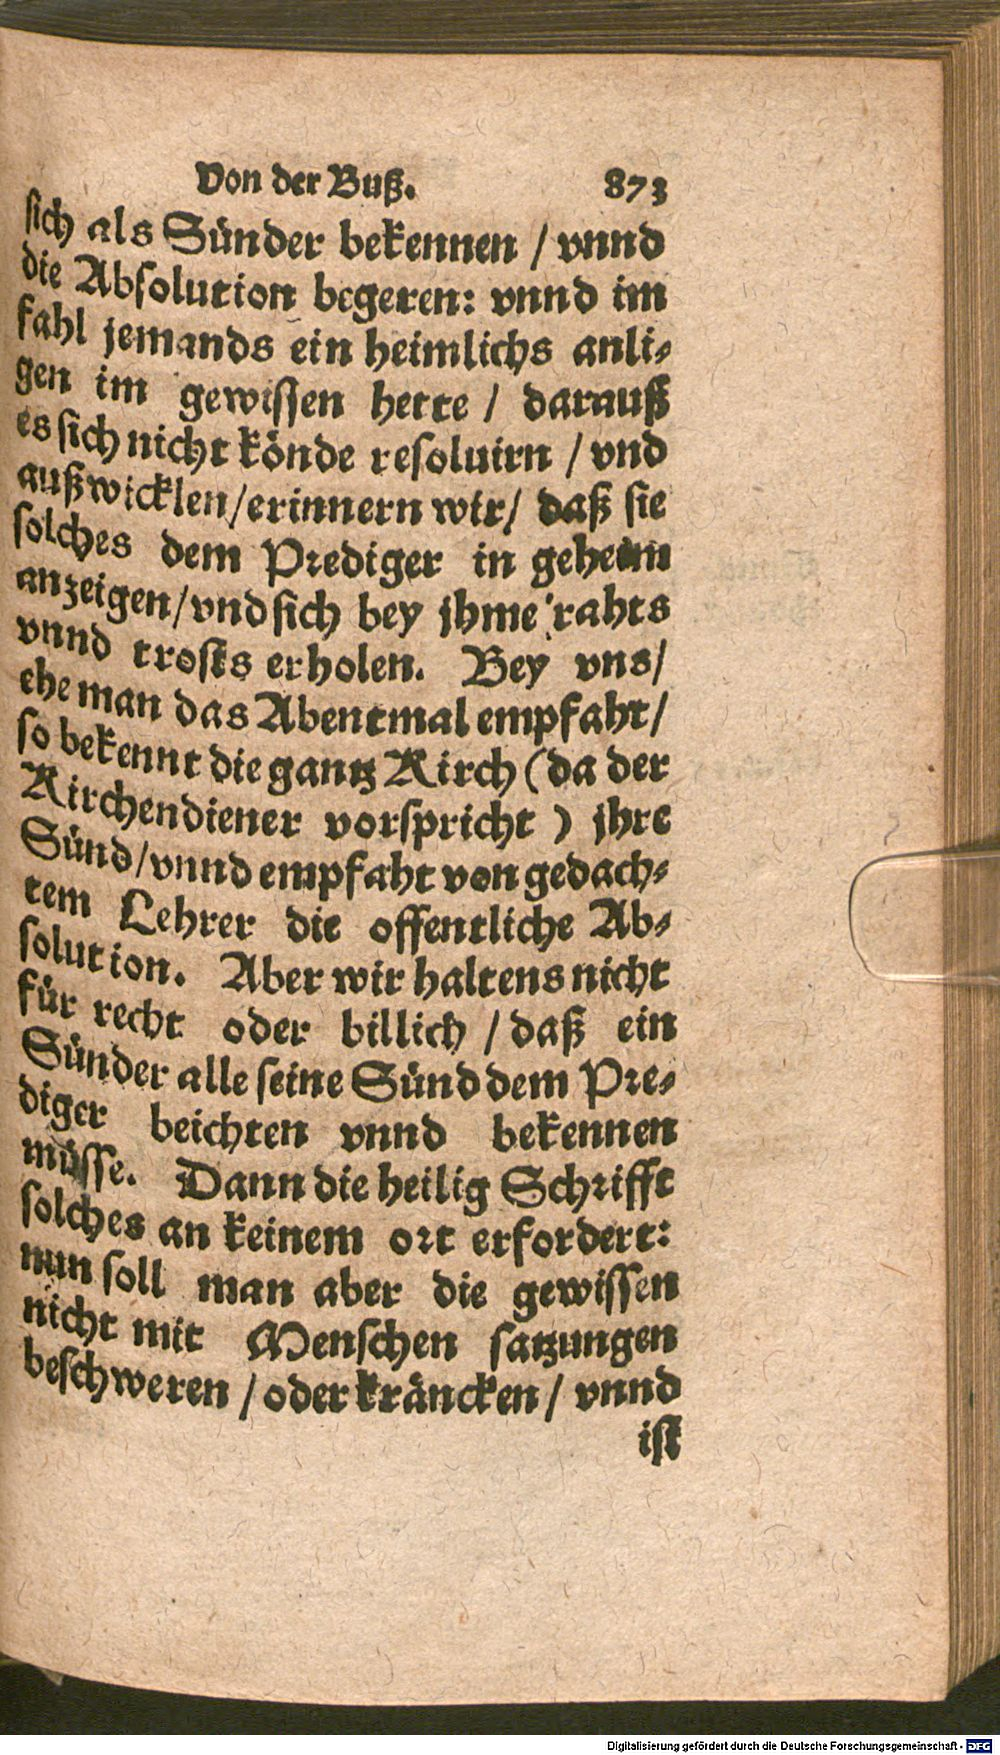 Von der Buß. 873
sich als Sünder bekennen / vnnd
die Absolution begeren: vnnd im
fahl jemands ein heimlichs anli-
gen im gewissen hette / darauß
es sich nicht könde resoluirn / vnd
außwicklen/erinnern wir/ daß sie
solches dem Prediger in geheim
anzeigen/vnd sich bey jhme rahts
vnnd trosts erholen. Bey vns/
ehe man das Abentmal empfaht/
so bekennt die gantz Kirch (da der
Kirchendiener vorspricht) jhre
Sünd/vnnd empfaht von gedach-
tem Lehrer die offentliche Ab-
solution. Aber wir haltens nicht
für recht oder billich / daß ein
Sünder alle seine Sünd dem Pre-
diger beichten vnnd bekennen
müsse. Dann die heilig Schrifft
solches an keinem ort erfordert:
nun soll man aber die gewissen
nicht mit Menschen satzungen
beschweren / oder kräncken / vnnd
ist
Digitalisierung gefördert durch die Deutsche Forschungsgemeinschaft - DFG